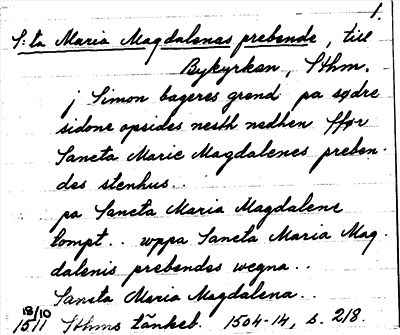 1.
S:ta Maria Magdalenas prebende, till
Bykyrkan, Sthm.
j Simon bageres grend pa sødre
sidone opsides nesth nedhen ffor
Sancta Marie Magdalenes preben-
des stenhus..
pa Sancta Maria Magdalene
tompt.. wppa Sancta Maria Mag-
dalenis prebendes wegna..
Sancta Maria Magdalena..
18/10
1511 Sthms tänkeb. 1504-14, s. 218.